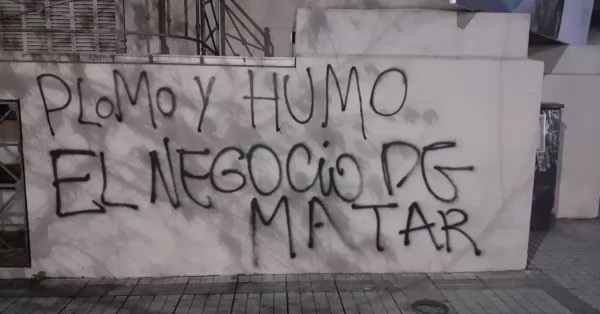 PLoMo Y HUMO
EL NEGOCiO DG
MATAR